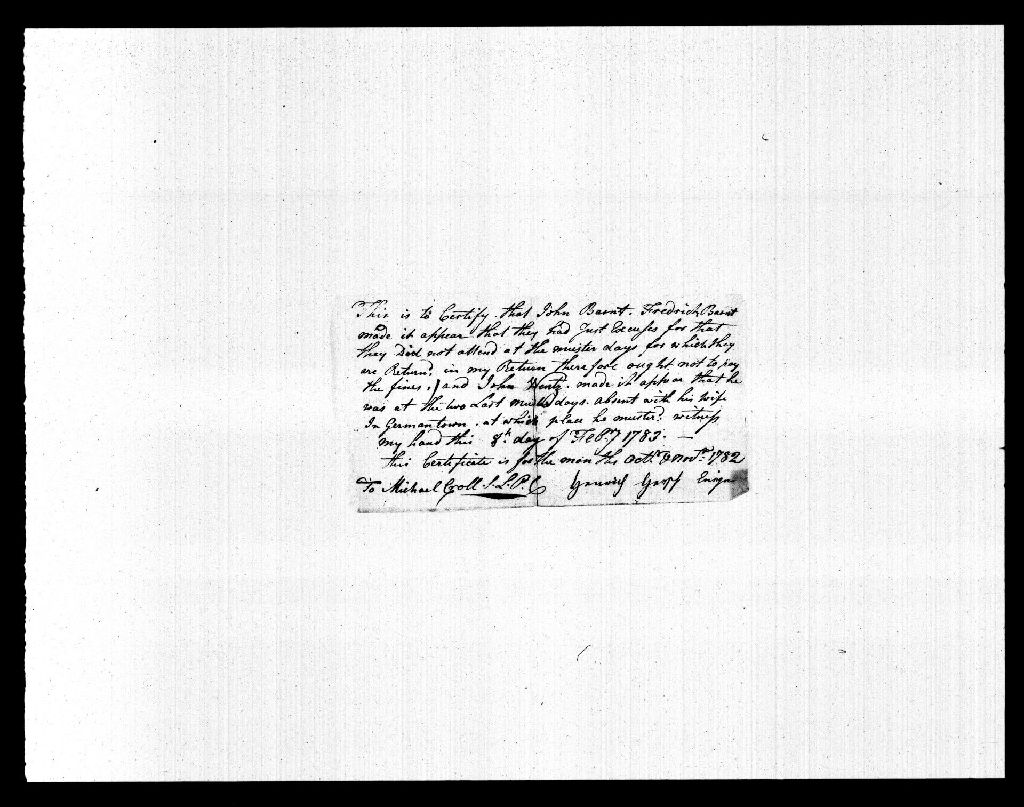 This is to Certify that John Barnt. Fredrich Barnt
made it appear that they had Just Excuses for that
they Did not attend at the muster days for which they
are Returnd in my Return therefore ought not to pay
the fines. and John Wentz. made it appear that he
was at the two Last muster days absent with his wife
In Germantown. at which place he musterd. witness
my hand this 8th day of Feb.y 1783. —
this Certificate is for the months Octr. & Novr. 1782
To Michael Croll S.L.P.C Ensign